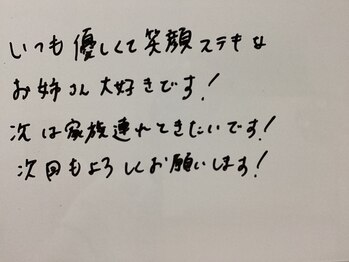 いつも優しくて笑顔ステキな
お姉さん大好きです！
次は家族連れてきたいです！
次回もよろしくお願いします！